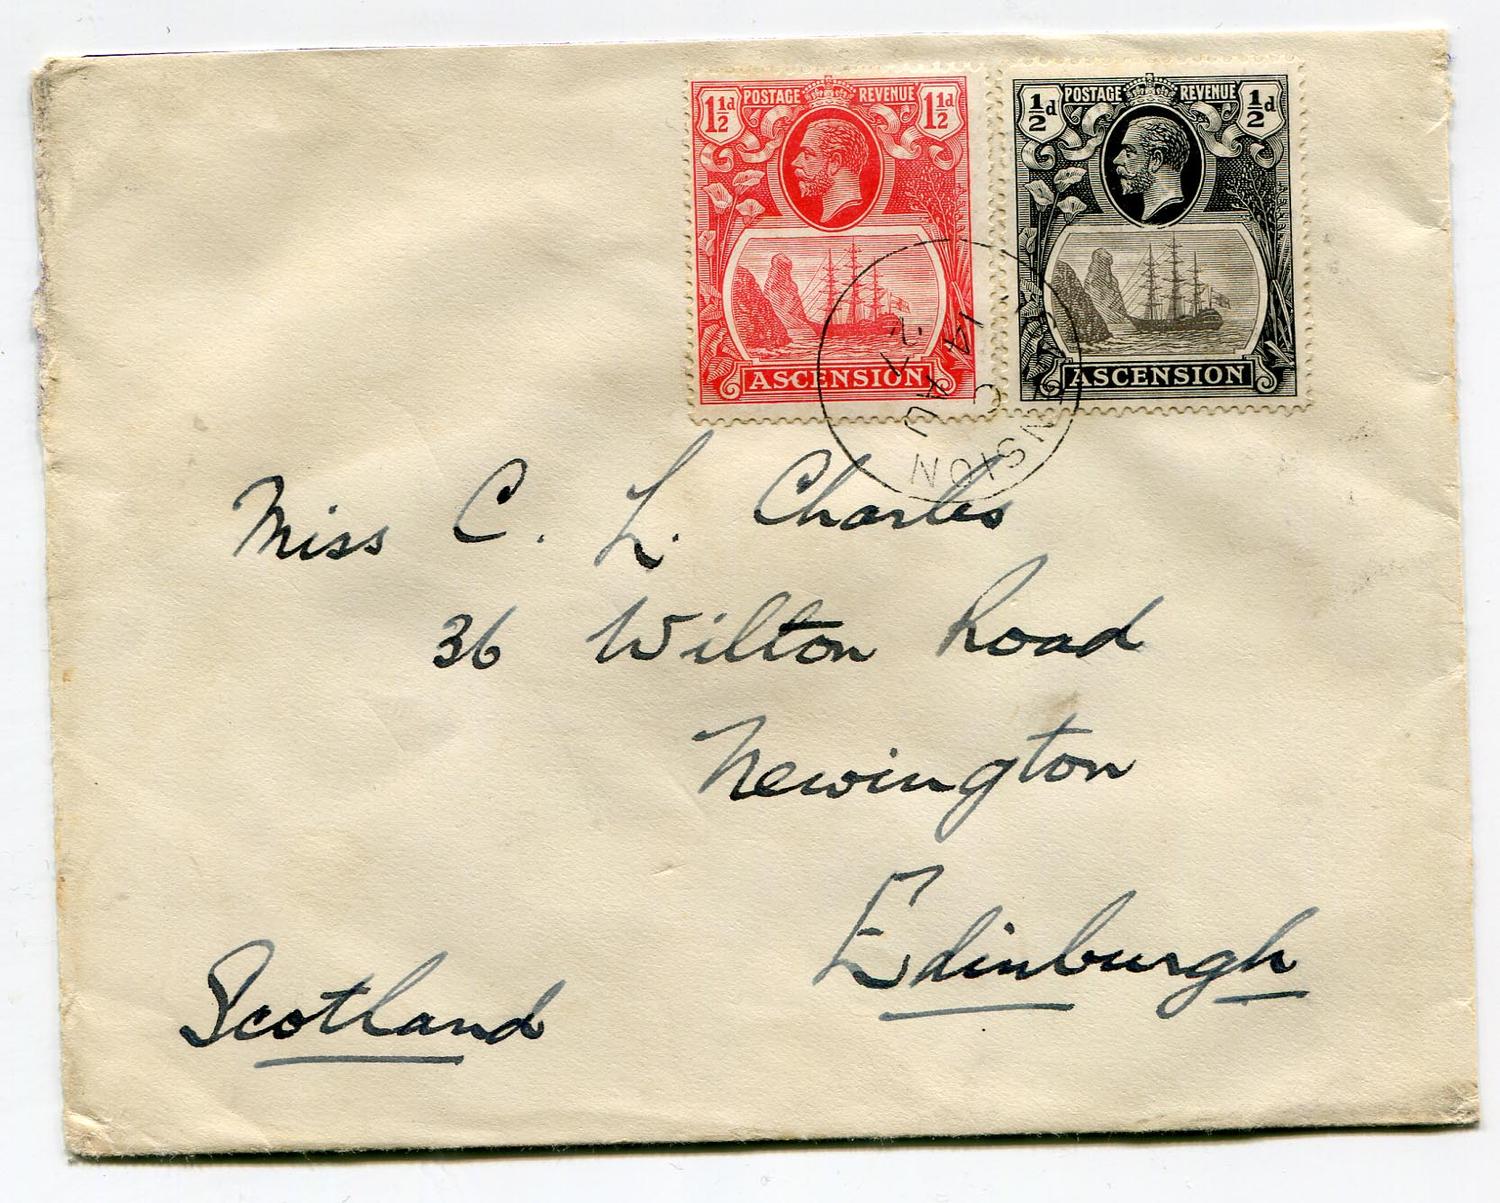 1½d POSTAGE REVENUE 1½d
ASCENSION
½d POSTAGE REVENUE ½d
ASCENSION
14 AU 27
Miss C. L. Charles
36 Wilton Road
Newington
Edinburgh
Scotland